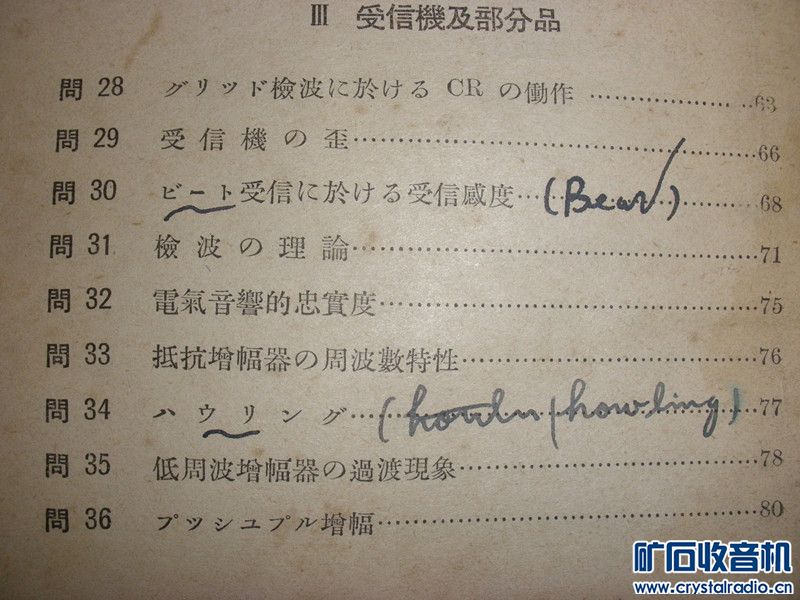 III 受信機及部分品
問 28 グリツド檢波に於ける CR の働作 ………………63
問 29 受信機の歪………………66
問 30 ビート受信に於ける受信感度………………68 (Beat)
問 31 檢波の理論………………71
問 32 電氣音響的忠實度………………75
問 33 抵抗增幅器の周波數特性………………76
問 34 ハウリング………………77 (howling)
問 35 低周波增幅器の過渡現象………………78
問 36 プツシユプル增幅………………80
矿石收音机
www.crystalradio.cn